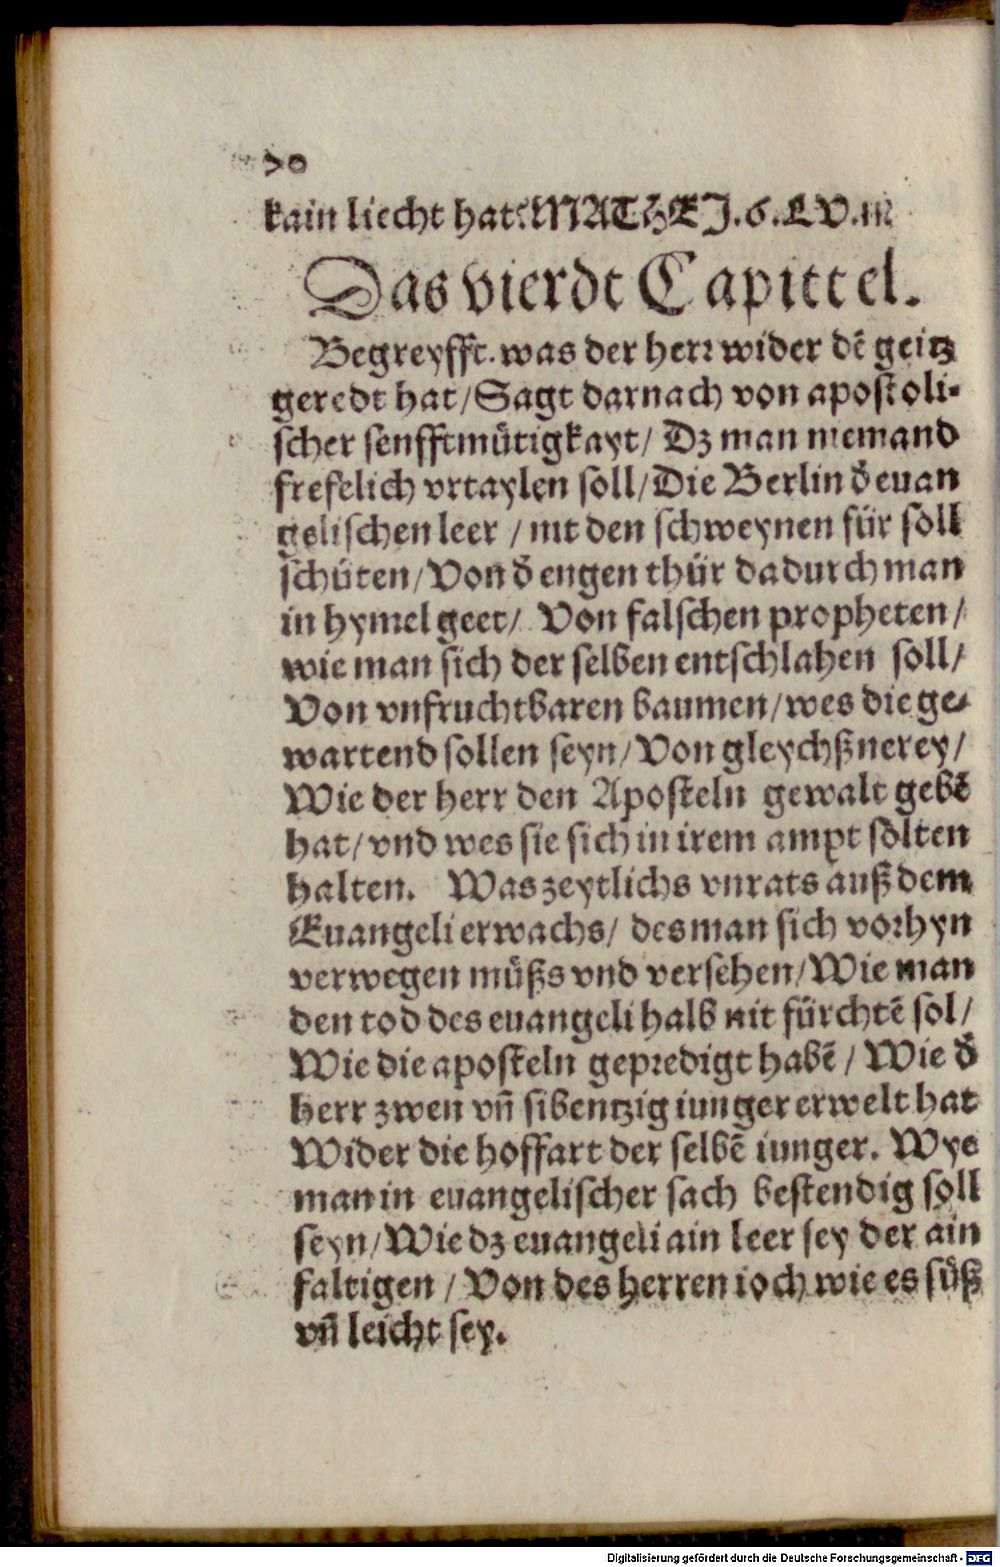 70
kain liecht hat. MATHEJ. 6. LV. m
Das vierdt Capittel.
Begreyfft. was der herr wider dē geitz
geredt hat/ Sagt darnach von apostoli-
scher senfftmuͤtigkayt/ Dz man niemand
frefelich vrtaylen soll/ Die Berlin d̄ euan
gelischen leer / nit den schweynen für soll
schüten/ Von d̄ engen thür dadurch man
in hymel geet/ Von falschen propheten/
wie man sich der selben entschlahen soll/
Von vnfruchtbaren baumen/ wes die ge-
wartend sollen seyn/ Von gleychßnerey/
Wie der herr den Aposteln gewalt gebē
hat/ vnd wes sie sich in irem ampt solten
halten. Was zeytlichs vnrats auß dem
Euangeli erwachs/ des man sich vorhyn
verwegen muͤßs vnd versehen/ Wie man
den tod des euangeli halb nit fürchtē sol/
Wie die aposteln gepredigt habē / Wie d̄
herr zwen vn̄ sibentzig iunger erwelt hat
Wider die hoffart der selbē iunger. Wye
man in euangelischer sach bestendig soll
seyn/ Wie dz euangeli ain leer sey der ain
faltigen / Von des herren ioch wie es suͤß
vn̄ leicht sey.
Digitalisierung gefördert durch die Deutsche Forschungsgemeinschaft - DFG